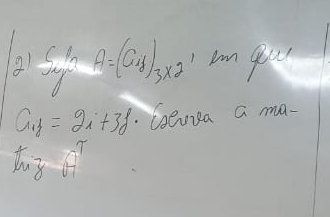 2) Seja A=(aij)3x2, em que
aij = 2i+3j. Escreva a ma-
triz A^T